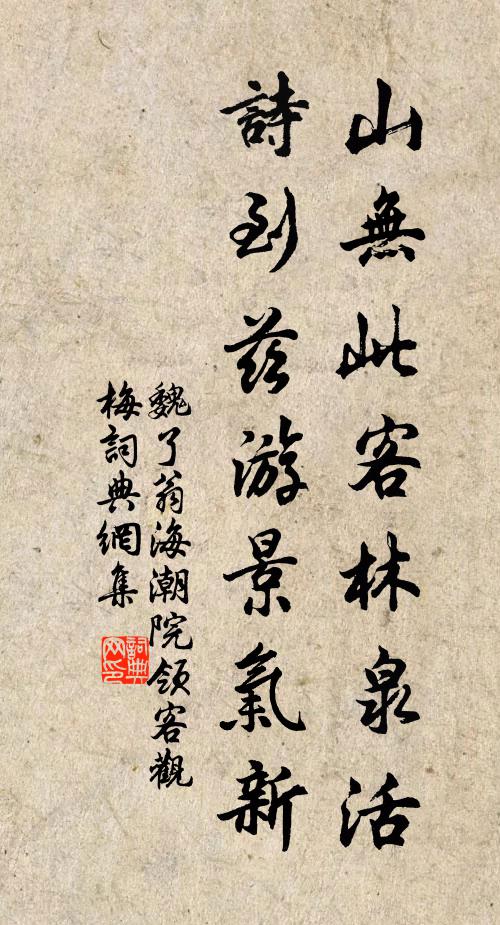 山無此客林泉活
詩到茲游景氣新
魏了翁海潮院領客觀
梅詞典網集
詞典网印